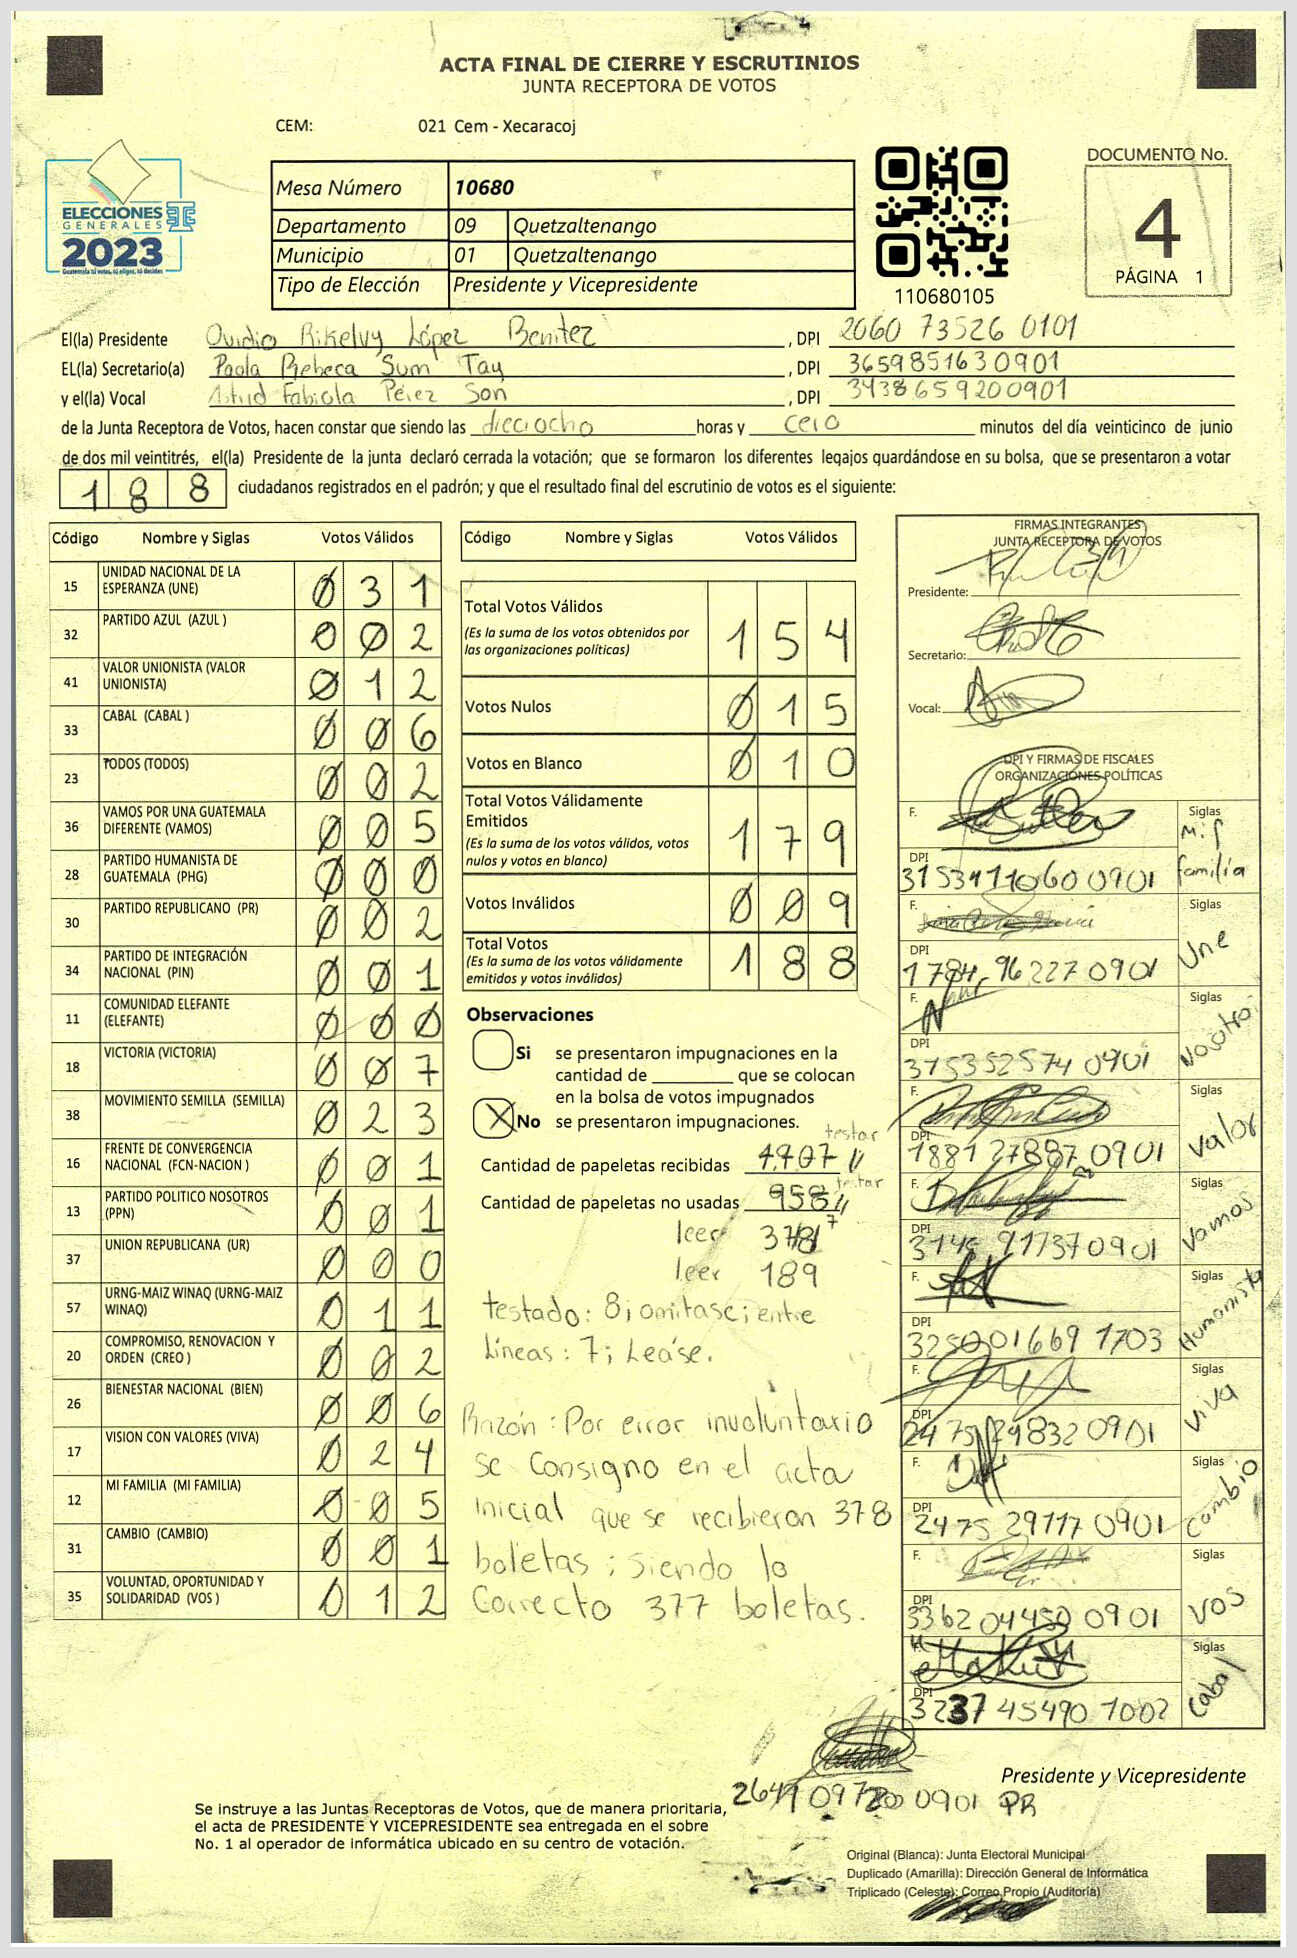 ACTA FINAL DE CIERRE Y ESCRUTINIOS
JUNTA RECEPTORA DE VOTOS
CEM: 021 Cem - Xecaracoj
DOCUMENTO No.
4
PÁGINA 1
ELECCIONES
GENERALES
2023
Guatemala tú votas, tú eliges, tú decides
Mesa Número 10680
Departamento 09 Quetzaltenango
Municipio 01 Quetzaltenango
Tipo de Elección Presidente y Vicepresidente
110680105
El(la) Presidente Ovidio Rikelvy López Benitez, DPI 2060 73526 0101
EL(la) Secretario(a) Paola Rebeca Sum Tay, DPI 3659851630901
y el(la) Vocal Astrid Fabiola Pérez Son, DPI 3438659200901
de la Junta Receptora de Votos, hacen constar que siendo las dieciocho horas y cero minutos del día veinticinco de junio
de dos mil veintitrés, el(la) Presidente de la junta declaró cerrada la votación; que se formaron los diferentes legajos guardándose en su bolsa, que se presentaron a votar
188 ciudadanos registrados en el padrón; y que el resultado final del escrutinio de votos es el siguiente:
Código Nombre y Siglas Votos Válidos
15 UNIDAD NACIONAL DE LA ESPERANZA (UNE) 031
32 PARTIDO AZUL (AZUL ) 002
41 VALOR UNIONISTA (VALOR UNIONISTA) 012
33 CABAL (CABAL ) 006
23 TODOS (TODOS) 002
36 VAMOS POR UNA GUATEMALA DIFERENTE (VAMOS) 005
28 PARTIDO HUMANISTA DE GUATEMALA (PHG) 000
30 PARTIDO REPUBLICANO (PR) 002
34 PARTIDO DE INTEGRACIÓN NACIONAL (PIN) 001
11 COMUNIDAD ELEFANTE (ELEFANTE) 000
18 VICTORIA (VICTORIA) 007
38 MOVIMIENTO SEMILLA (SEMILLA) 023
16 FRENTE DE CONVERGENCIA NACIONAL (FCN-NACION ) 001
13 PARTIDO POLITICO NOSOTROS (PPN) 001
37 UNION REPUBLICANA (UR) 000
57 URNG-MAIZ WINAQ (URNG-MAIZ WINAQ) 011
20 COMPROMISO, RENOVACION Y ORDEN (CREO ) 002
26 BIENESTAR NACIONAL (BIEN) 006
17 VISION CON VALORES (VIVA) 024
12 MI FAMILIA (MI FAMILIA) 005
31 CAMBIO (CAMBIO) 001
35 VOLUNTAD, OPORTUNIDAD Y SOLIDARIDAD (VOS ) 012
Código Nombre y Siglas Votos Válidos
Total Votos Válidos 154
(Es la suma de los votos obtenidos por
las organizaciones políticas)
Votos Nulos 015
Votos en Blanco 010
Total Votos Válidamente
Emitidos 179
(Es la suma de los votos válidos, votos
nulos y votos en blanco)
Votos Inválidos 009
Total Votos 188
(Es la suma de los votos válidamente
emitidos y votos inválidos)
Observaciones
Si se presentaron impugnaciones en la
cantidad de ________ que se colocan
en la bolsa de votos impugnados
X No se presentaron impugnaciones.
testar
Cantidad de papeletas recibidas
testar
Cantidad de papeletas no usadas 958
leer 378 7
leer 189
testado: 8; omitase; entre
Lineas: 7; Lease.
Razón: Por error involuntario
se consigno en el acta
inicial que se recibieron 378
boletas; siendo lo
correcto 377 boletas.
FIRMAS INTEGRANTES
JUNTA RECEPTORA DE VOTOS
Presidente:
Secretario:
Vocal:
DPI Y FIRMAS DE FISCALES
ORGANIZACIONES POLÍTICAS
F. Siglas
Mi familia
DPI
F. Siglas
Une
DPI
F. Siglas
Nosotros
DPI
3753525740901
F. Siglas
Valor
DPI
1881278870901
F. Siglas
Vamos
DPI
F. Siglas
Humanista
DPI
3250016691703
F. Siglas
Viva
DPI
F. Siglas
Cambio
DPI
2475291170901
F. Siglas
VOS
DPI
3362044500901
F. Siglas
Cabal
DPI
3237454901002
0901 PR
Presidente y Vicepresidente
Se instruye a las Juntas Receptoras de Votos, que de manera prioritaria,
el acta de PRESIDENTE Y VICEPRESIDENTE sea entregada en el sobre
No. 1 al operador de informática ubicado en su centro de votación.
Original (Blanca): Junta Electoral Municipal
Duplicado (Amarilla): Dirección General de Informática
Triplicado (Celeste): Correo Propio (Auditoría)